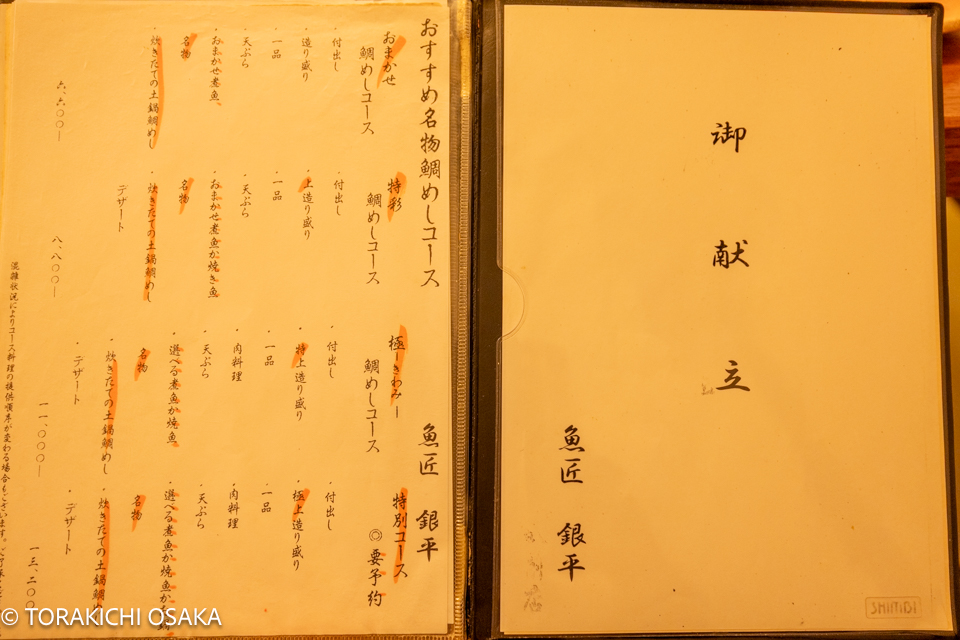 御献立
魚匠 銀平
おすすめ名物鯛めしコース
魚匠 銀平
おまかせ
鯛めしコース
・付出し
・造り盛り
・一品
・天ぷら
・おまかせ煮魚
名物
・炊きたての土鍋鯛めし
六、六〇〇―
特彩
鯛めしコース
・付出し
・上造り盛り
・一品
・天ぷら
・おまかせ煮魚か焼き魚
名物
・炊きたての土鍋鯛めし
デザート
八、八〇〇―
極―きわみ―
鯛めしコース
・付出し
・特上造り盛り
・一品
・肉料理
・天ぷら
・選べる煮魚か焼魚
名物
・炊きたての土鍋鯛めし
・デザート
一一、〇〇〇―
特別コース
◎要予約
・付出し
・極上造り盛り
・一品
・肉料理
・天ぷら
・選べる煮魚か焼魚か
名物
・炊きたての土鍋鯛め
・デザート
一三、二〇〇
混雑状況によりコース料理の提供順序が変わる場合もございます。
SHIMBI
© TORAKICHI OSAKA